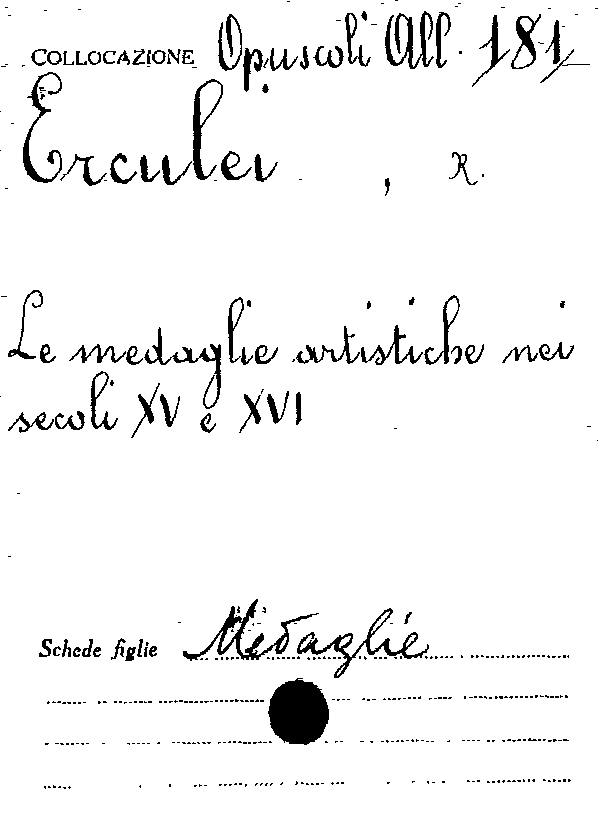 COLLOCAZIONE Opuscoli All. 181
Erculei , R.
Le medaglie artistiche nei
secoli XV e XVI
Schede figlie Medaglie